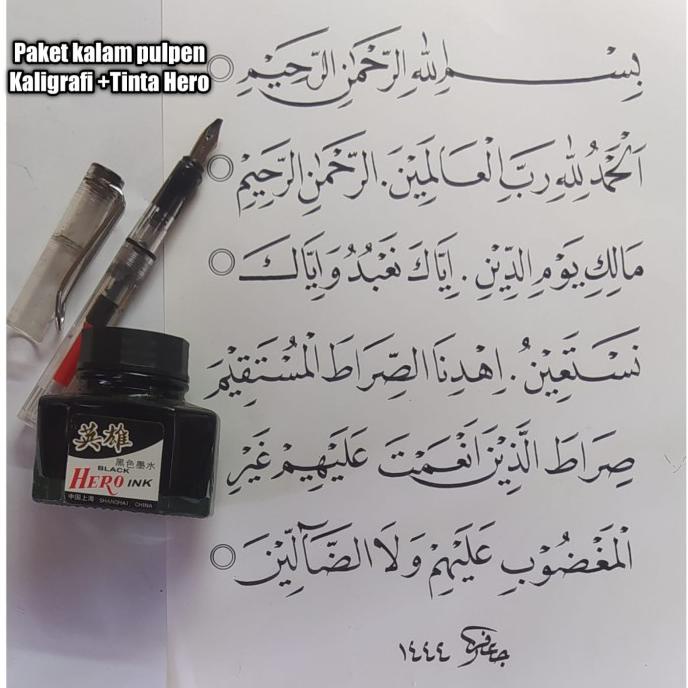 Paket kalam pulpen
Kaligrafi +Tinta Hero
بِسْمِ اللّٰهِ الرَّحْمٰنِ الرَّحِيْمِ
اَلْحَمْدُ لِلّٰهِ رَبِّ الْعَالَمِيْنَ. الرَّحْمٰنِ الرَّحِيْمِ
مَالِكِ يَوْمِ الدِّيْنِ. اِيَّاكَ نَعْبُدُ وَاِيَّاكَ
نَسْتَعِيْنُ. اِهْدِنَا الصِّرَاطَ الْمُسْتَقِيْمَ
صِرَاطَ الَّذِيْنَ اَنْعَمْتَ عَلَيْهِمْ غَيْرِ
الْمَغْضُوْبِ عَلَيْهِمْ وَلَا الضَّآلِّيْنَ
١٤٤٤
英雄
黑色墨水
BLACK
HERO INK
中国上海 SHANGHAI, CHINA